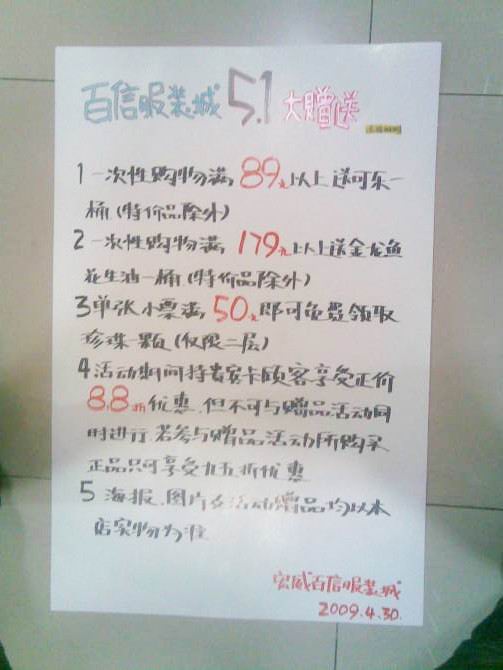 百信服装城 5.1 大赠送
1 一次性购物满89元以上送可乐一
桶(特价品除外)
2 一次性购物满179元以上送金龙鱼
花生油一桶(特价品除外)
3 单张小票满50元即可免费领取
珍珠一颗(仅限二层)
4 活动期间持贵宾卡顾客享受正价
8.8折优惠.但不可与赠品活动同
时进行.若参与赠品活动所购买
正品只可享受九五折优惠
5 海报.图片及活动赠品均以本
店实物为准
宏威百信服装城
2009.4.30.